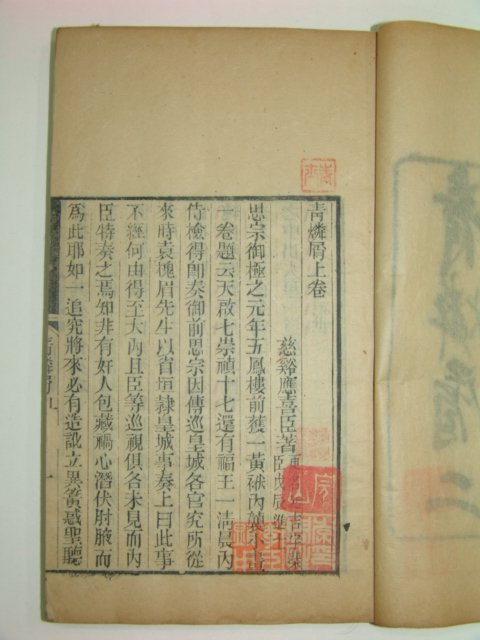 青燐屑上卷
慈谿應喜臣著
思宗御極之元年五鳳樓前獲一黃袱內
一卷題云天啟七崇禎十七還有福王一清晨內
侍檢得卽奏御前思宗因傳巡皇城各官究所從
來時袁槐眉先生以省垣隷皇城事奏上曰此事
不經何由得至大內且臣等巡視俱各未見而內
臣特奏之焉知非有奸人包藏禍心潛伏肘腋而
爲此耶如一追究將來必有造訛立異簧惑聖聽